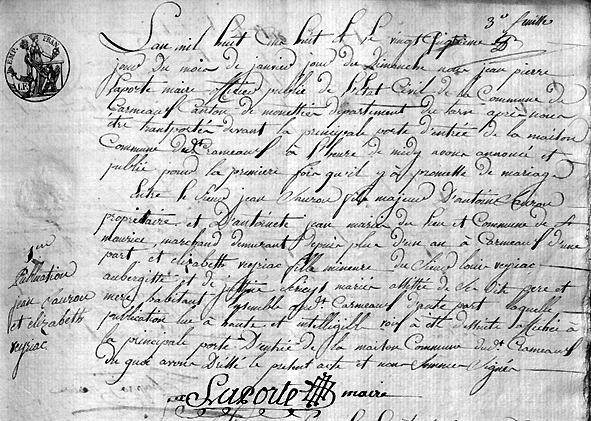 3e feuille
EMP. FRAN.
L'an mil huit cent huit et le vingt
jour du mois de janvier jour du Dimanche nous jean pierre
Laporte maire officier public de l'etat Civil de la Commune de
Carmeaux Canton de monestier departement du tarn apres nous
être transportés devant la principale porte d'entrée de la maison
Commune dudt Crameaux la l'heure de midy avons annoncé et
publié pour la premiere fois qu'il y a promesse de mariage
Entre le Sieur jean Vaurou fils majeur D'antoine Vaurou
proprietaire et D'antoinete jean mariés du lieu et Commune de St
maurice marchand demeurant Depuis plus d'un an a Carmeaux D'une
part et elizabeth veyriac fille mineure du Sieur louis veyriac
aubergitte et de mariés assistée de Sesdits pere et
mere, habitant ensemble audt Carmeaux d'autre part laquelle
publication lue à haute et intelligible voix a été de suite affichée à
la principale porte D'entrée de la maison Commune dudt Crameaux
du quoi avons Dressé le present acte et nous Sommes Signés
Laporte maire
1ere
Publication
jean vaurou
et elizabeth
veyriac